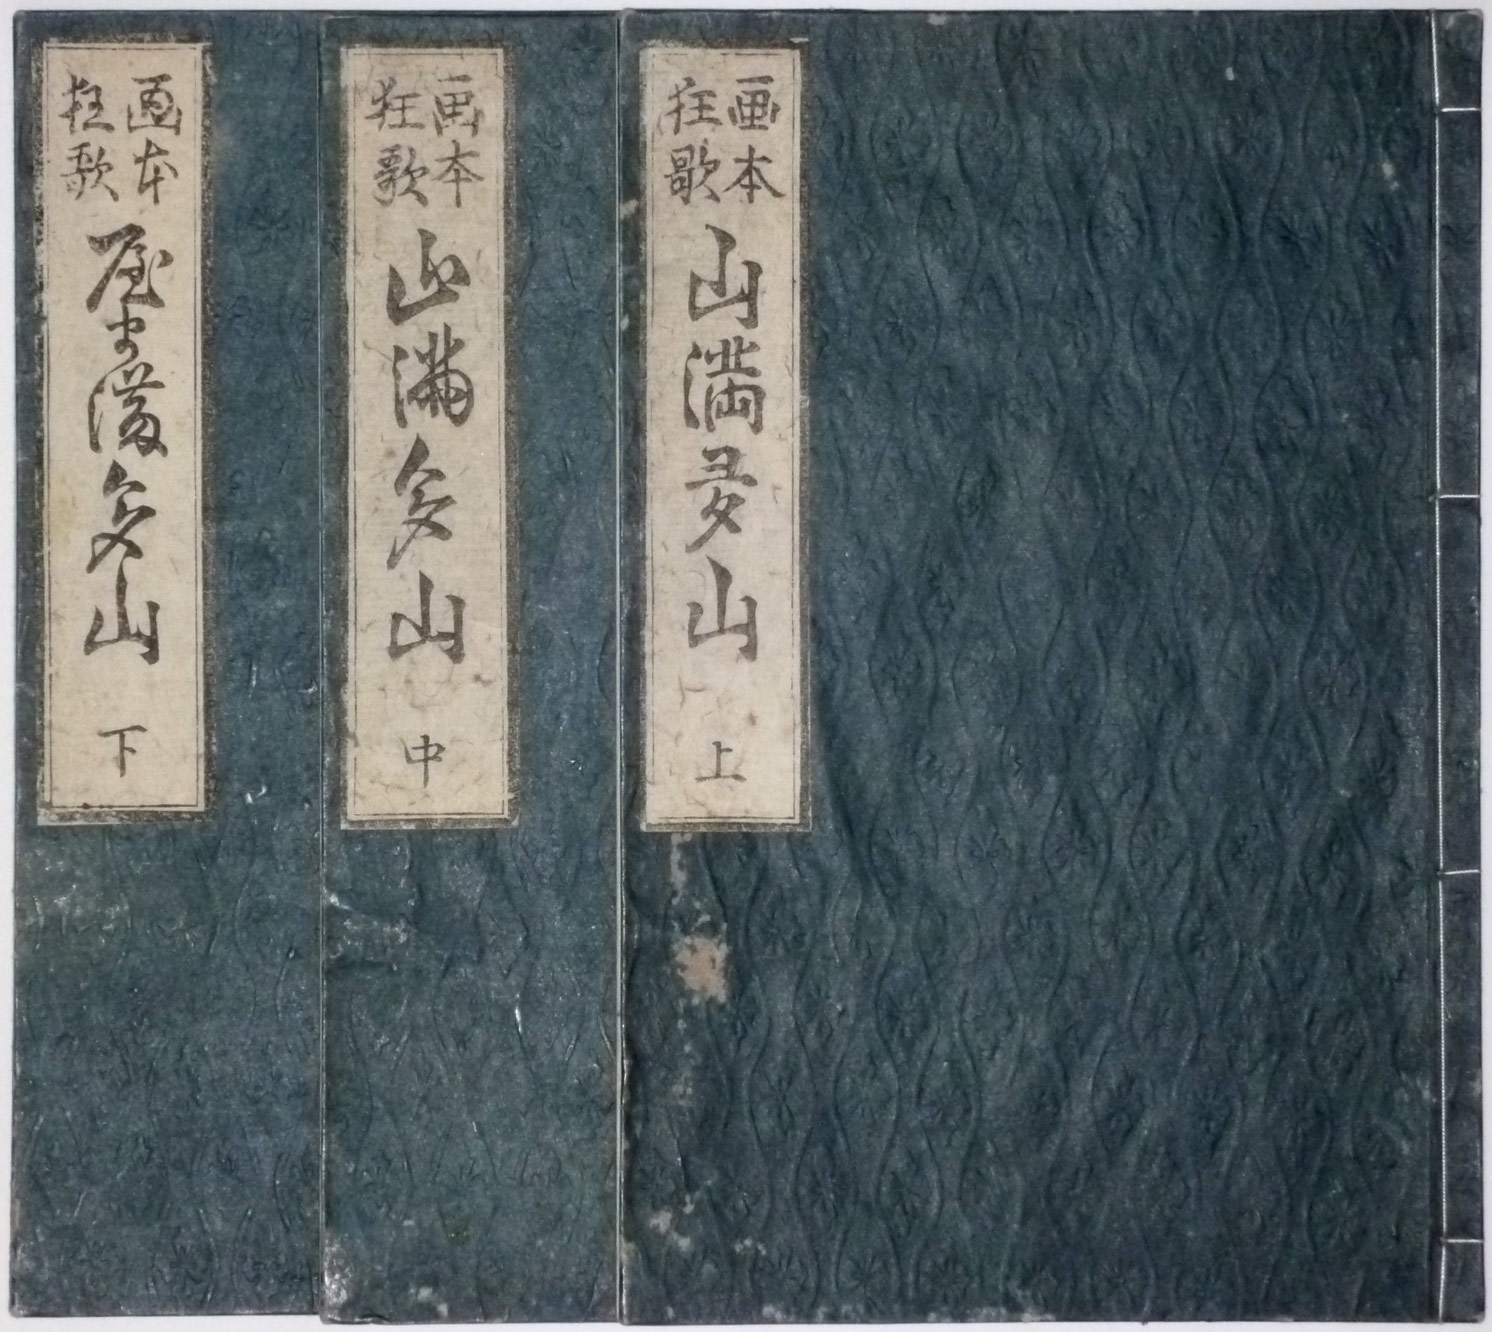 画本
狂歌
山満夛山
上
画本
狂歌
山満多山
中
画本
狂歌
屋ま満多山
下